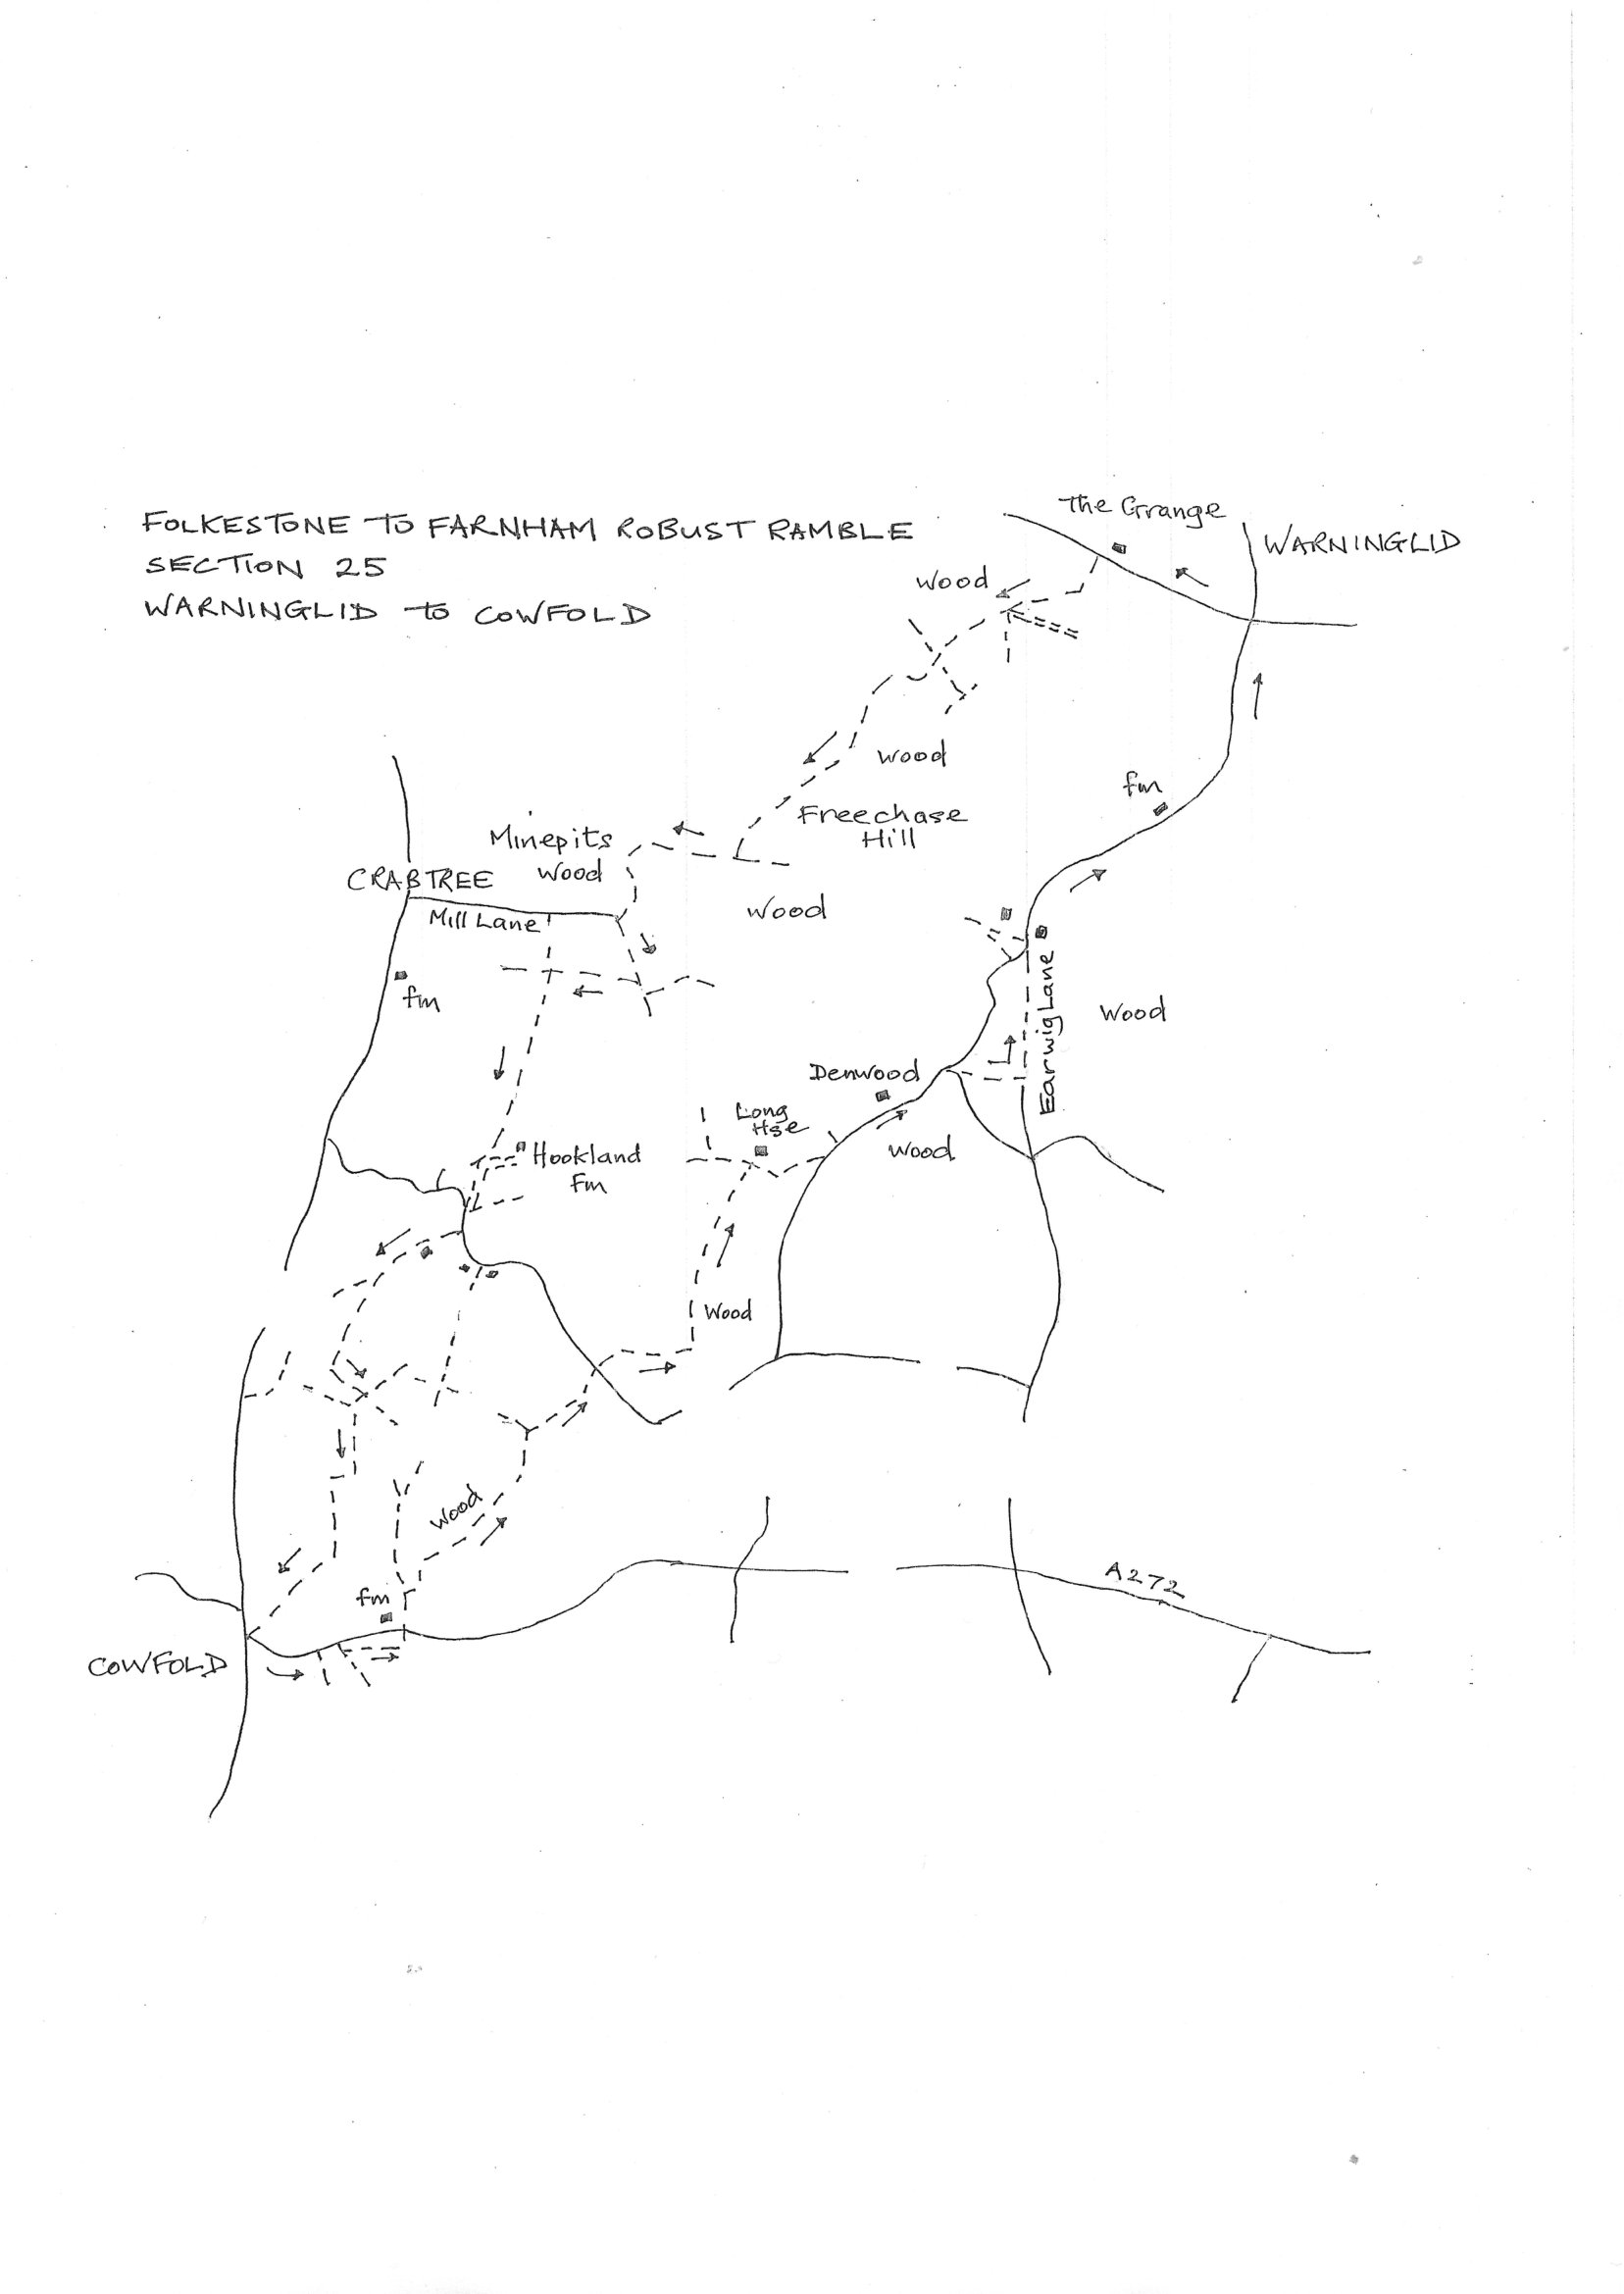 FOLKESTONE TO FARNHAM ROBUST RAMBLE
SECTION 25
WARNINGLID to COWFOLD
The Grange
WARNINGLID
Wood
Wood
fm
Freechase
Hill
Minepits
Wood
CRABTREE
Mill Lane
Wood
fm
Earwig Lane
Wood
Denwood
Long
Hse
Wood
Hookland
Fm
Wood
Wood
A272
fm
COWFOLD